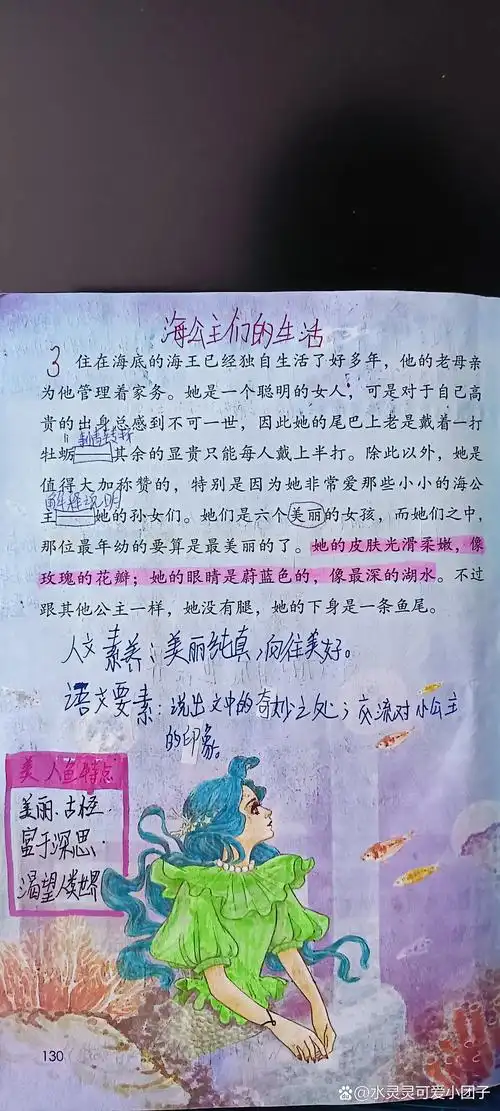 海公主们的生活
3 住在海底的海王已经独自生活了好多年，他的老母亲
为他管理着家务。她是一个聪明的女人，可是对于自己高
贵的出身总感到不可一世，因此她的尾巴上老是戴着一打
牡蛎——其余的显贵只能每人戴上半打。除此以外，她是
值得大加称赞的，特别是因为她非常爱那些小小的海公
解释说明
主——她的孙女们。她们是六个美丽的女孩，而她们之中，
那位最年幼的要算是最美丽的了。她的皮肤光滑柔嫩，像
玫瑰的花瓣；她的眼睛是蔚蓝色的，像最深的湖水。不过
跟其他公主一样，她没有腿，她的下身是一条鱼尾。
人文素养：美丽纯真，向往美好。
语文要素：说出文中的奇妙之处；交流对小公主
的印象。
美人鱼特点
美丽、古怪、
富于深思、
渴望人类世界
130
水灵灵可爱小团子